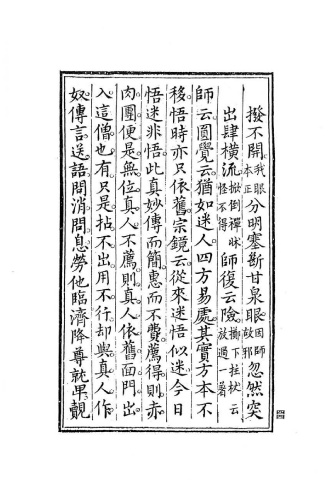 撥不開我眼本正分明塞斷甘泉眼因師故邪忽然突
出肆橫流掀倒禪牀怪不得師復云險擲下拄杖云放過一著
師云圓覺云猶如迷人四方易處其實方本不
移悟時亦只依舊宗鏡云從來迷悟似迷今日
悟迷非悟此真妙傳而簡惠而不費薦得則赤
肉團便是無位真人不薦則真人依舊面門出
入這僧也有只是拈不出用不行却與真人作
奴傳言送語問消問息勞他臨濟降尊就卑覿
四四